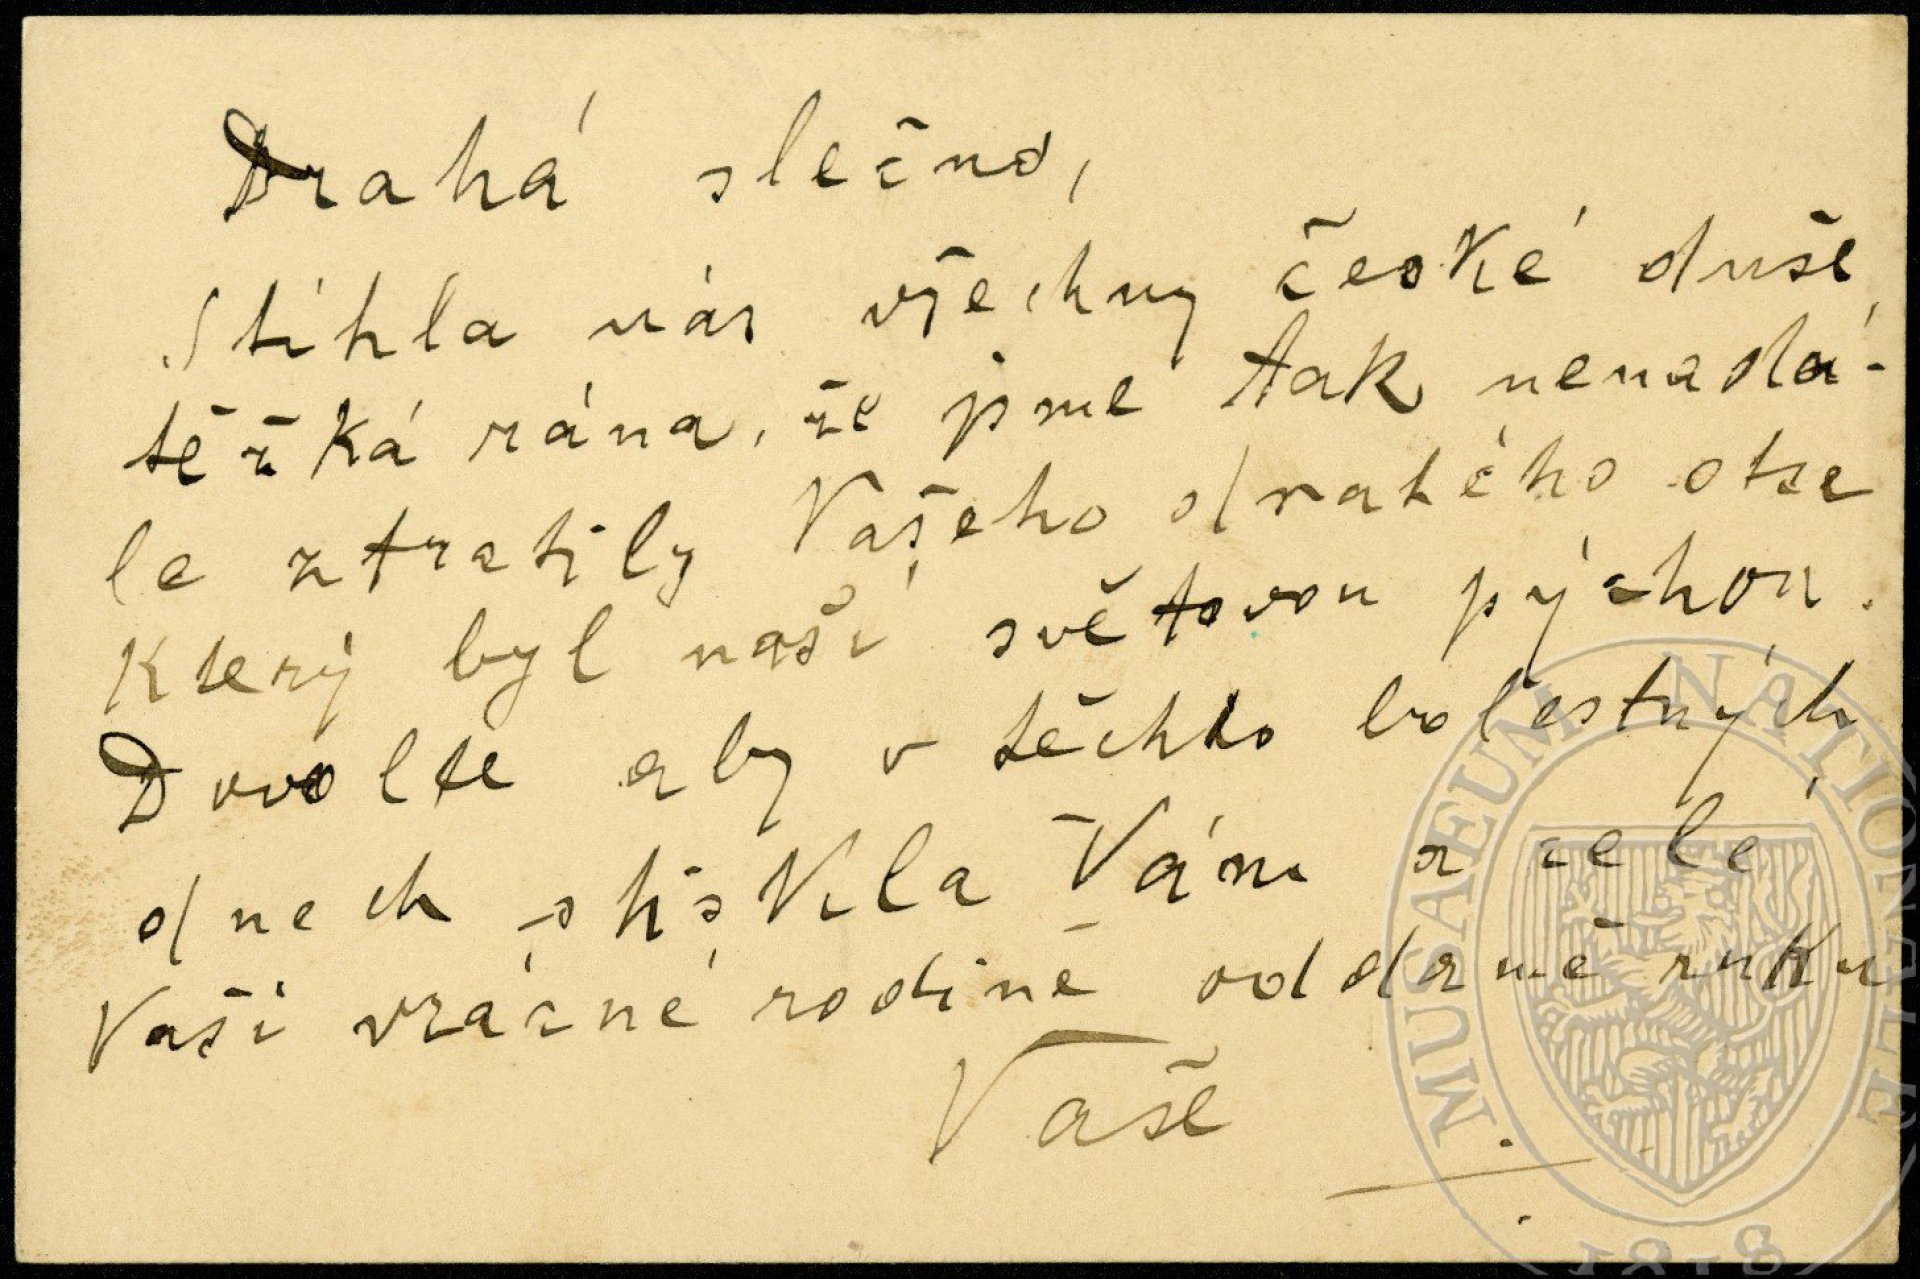 Drahá slečno,
Stihla nás všechny české duše,
těžká rána, že jsme tak nenadá-
le ztratily Vašeho drahého otce
který byl naší světovou pýchou.
Dovolte aby v těchto bolestných
dnech stiskla Vám a celé
Vaší vzácné rodině oddaně ruku
Vaše
MUSAEUM NATIONALE
1818